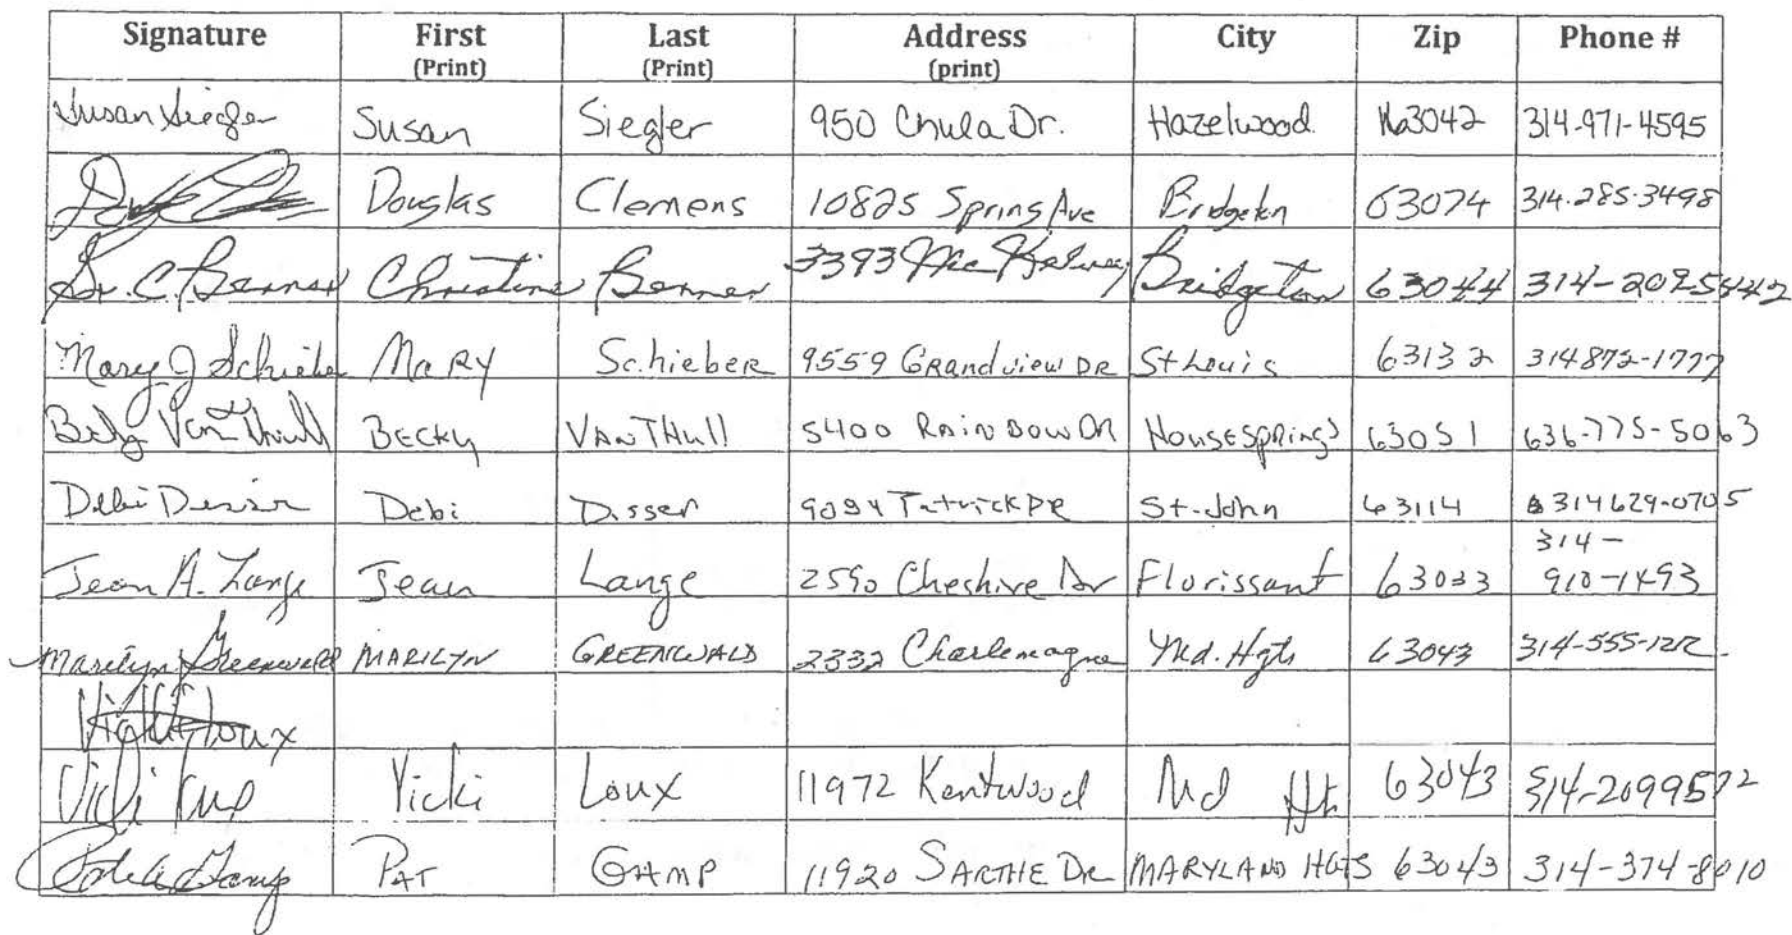 Signature First Last Address City Zip Phone #
(Print) (Print) (print)
Susan Siegler Susan Siegler 950 Chula Dr. Hazelwood. 63042 314-971-4595
Douglas Clemens 10825 Spring Ave Bridgeton 63074 314-285-3498
Dr. C. Benner Christine Benner 3393 Mc Kelvey Bridgeton 63044 314-209-5442
Mary J Schieber MaRy SchiebeR 9559 GRandview DR St Louis 63132 314 872-1777
Becky VanThull BECKy VANTHull 5400 RAINBOW DR HOUSE SPRINgs 63051 636-775-5063
Debi Disser Debi Disser 9094 Patrick DR St-John 63114 314 629-0705
314-
Jean A. Lange Jean Lange 2590 Cheshire Dr Florissant 63033 910-1493
Marilyn Greenwald MARILYN GREENWALD 2332 Charlemagne Md. Hgts 63043 314-555-1212
Vicki Loux
Vicki Loux Vicki Loux 11972 Kentwood Md Ht 63043 314-2099572
PAT GAMP 11920 SARTHE DR MARYLAND HGTS 63043 314-374-8010